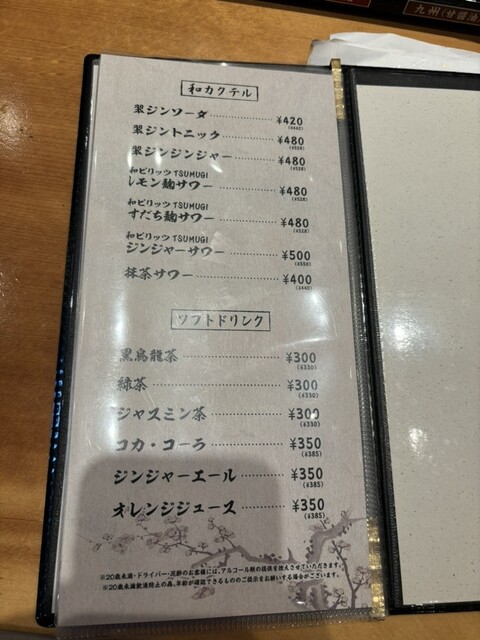 九州(甘醤油)
和カクテル
翠ジンソーダ ¥420
(¥462)
翠ジントニック ¥480
(¥528)
翠ジンジンジャー ¥480
(¥528)
和ピリッツTSUMUGI
レモン麹サワー ¥480
(¥528)
和ピリッツTSUMUGI
すだち麹サワー ¥480
(¥528)
和ピリッツTSUMUGI
ジンジャーサワー ¥500
(¥550)
抹茶サワー ¥400
(¥440)
ソフトドリンク
黒烏龍茶 ¥300
(¥330)
緑茶 ¥300
(¥330)
ジャスミン茶 ¥300
(¥330)
コカ・コーラ ¥350
(¥385)
ジンジャーエール ¥350
(¥385)
オレンジジュース ¥350
(¥385)
※20歳未満・ドライバー・泥酔のお客様には、アルコール類の提供を控えさせていただきます。
※20歳未満飲酒防止の為、年齢が確認できるもののご提示をお願いする場合がございます。